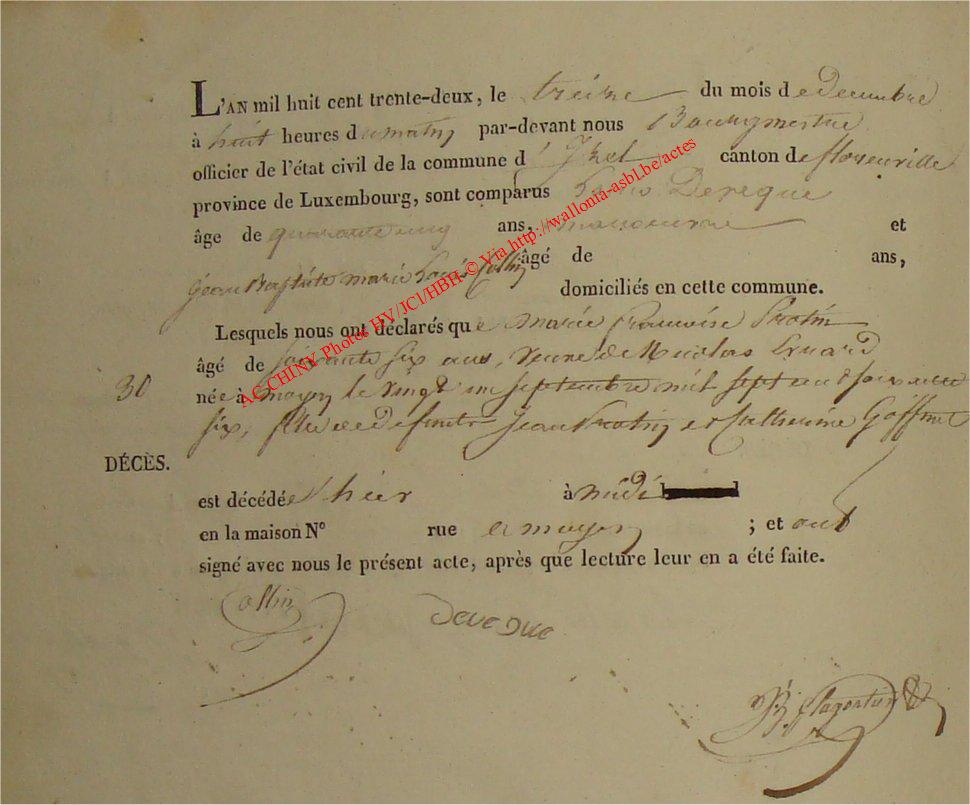 L'AN mil huit cent trente-deux, le treize du mois de decembre
à huit heures du matin par-devant nous Bourgmestre
officier de l'état civil de la commune d' Izel canton de florenville
province de Luxembourg, sont comparus Louis Deveque
âge de quarante cinq ans, manoeuvre et
Jean Baptiste marie Louis Collin âgé de ans,
domiciliés en cette commune.
Lesquels nous ont déclarés que marie francoise Protin
âgé de soixante six ans, veuve de Nicolas Evrard
30
née à moyen le vingt un septembre mil sept cent soixante
six, fille de defunts Jean Protin et Catherine Goffinet
DÉCÈS.
est décédée hier à midi
en la maison N° rue a moyen ; et ont
signé avec nous le présent acte, après que lecture leur en a été faite.
Collin
deveque
AC CHINY Photos HY/JCl/HBH © Via http://wallonia-asbl.be/actes